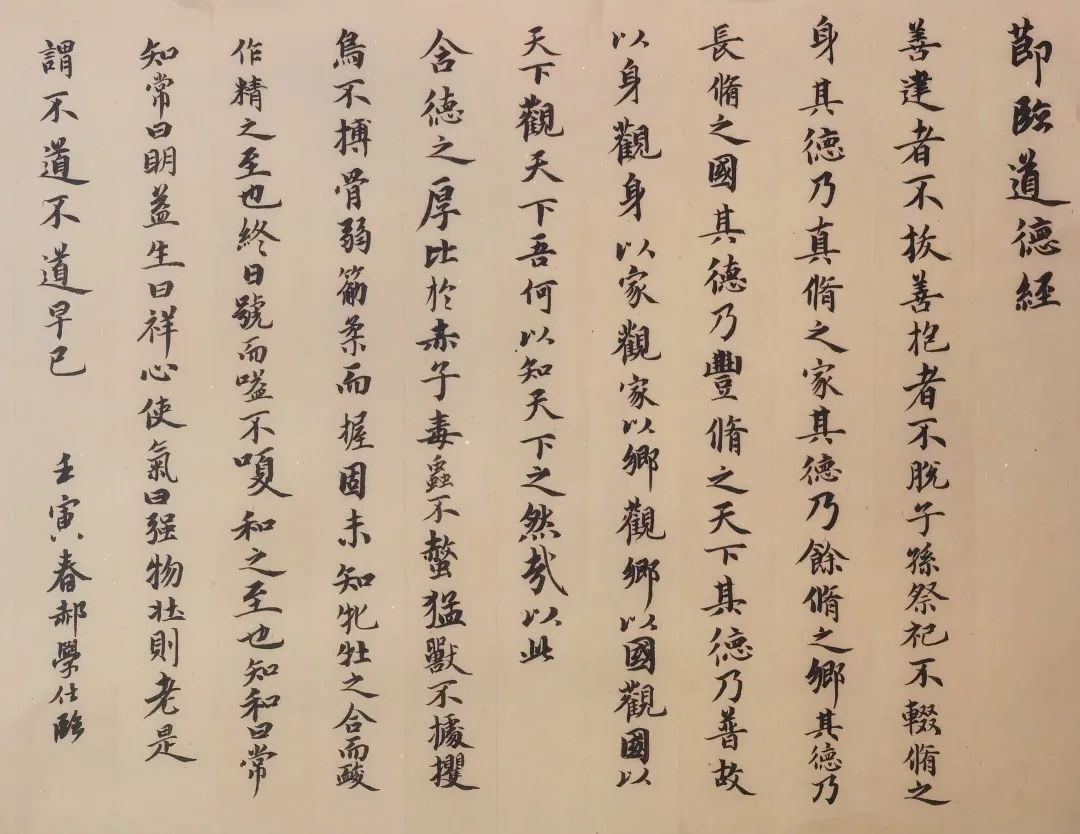 節臨道德經
善建者不拔善抱者不脫子孫祭祀不輟脩之
身其德乃真脩之家其德乃餘脩之鄉其德乃
長脩之國其德乃豐脩之天下其德乃普故
以身觀身以家觀家以鄉觀鄉以國觀國以
天下觀天下吾何以知天下之然哉以此
含德之厚比於赤子毒蟲不螫猛獸不據攫
鳥不搏骨弱筋柔而握固未知牝牡之合而酸
作精之至也終日號而嗌不嗄和之至也知和曰常
知常曰明益生曰祥心使氣曰强物壯則老是
謂不道不道早已
壬寅春郝學仕臨